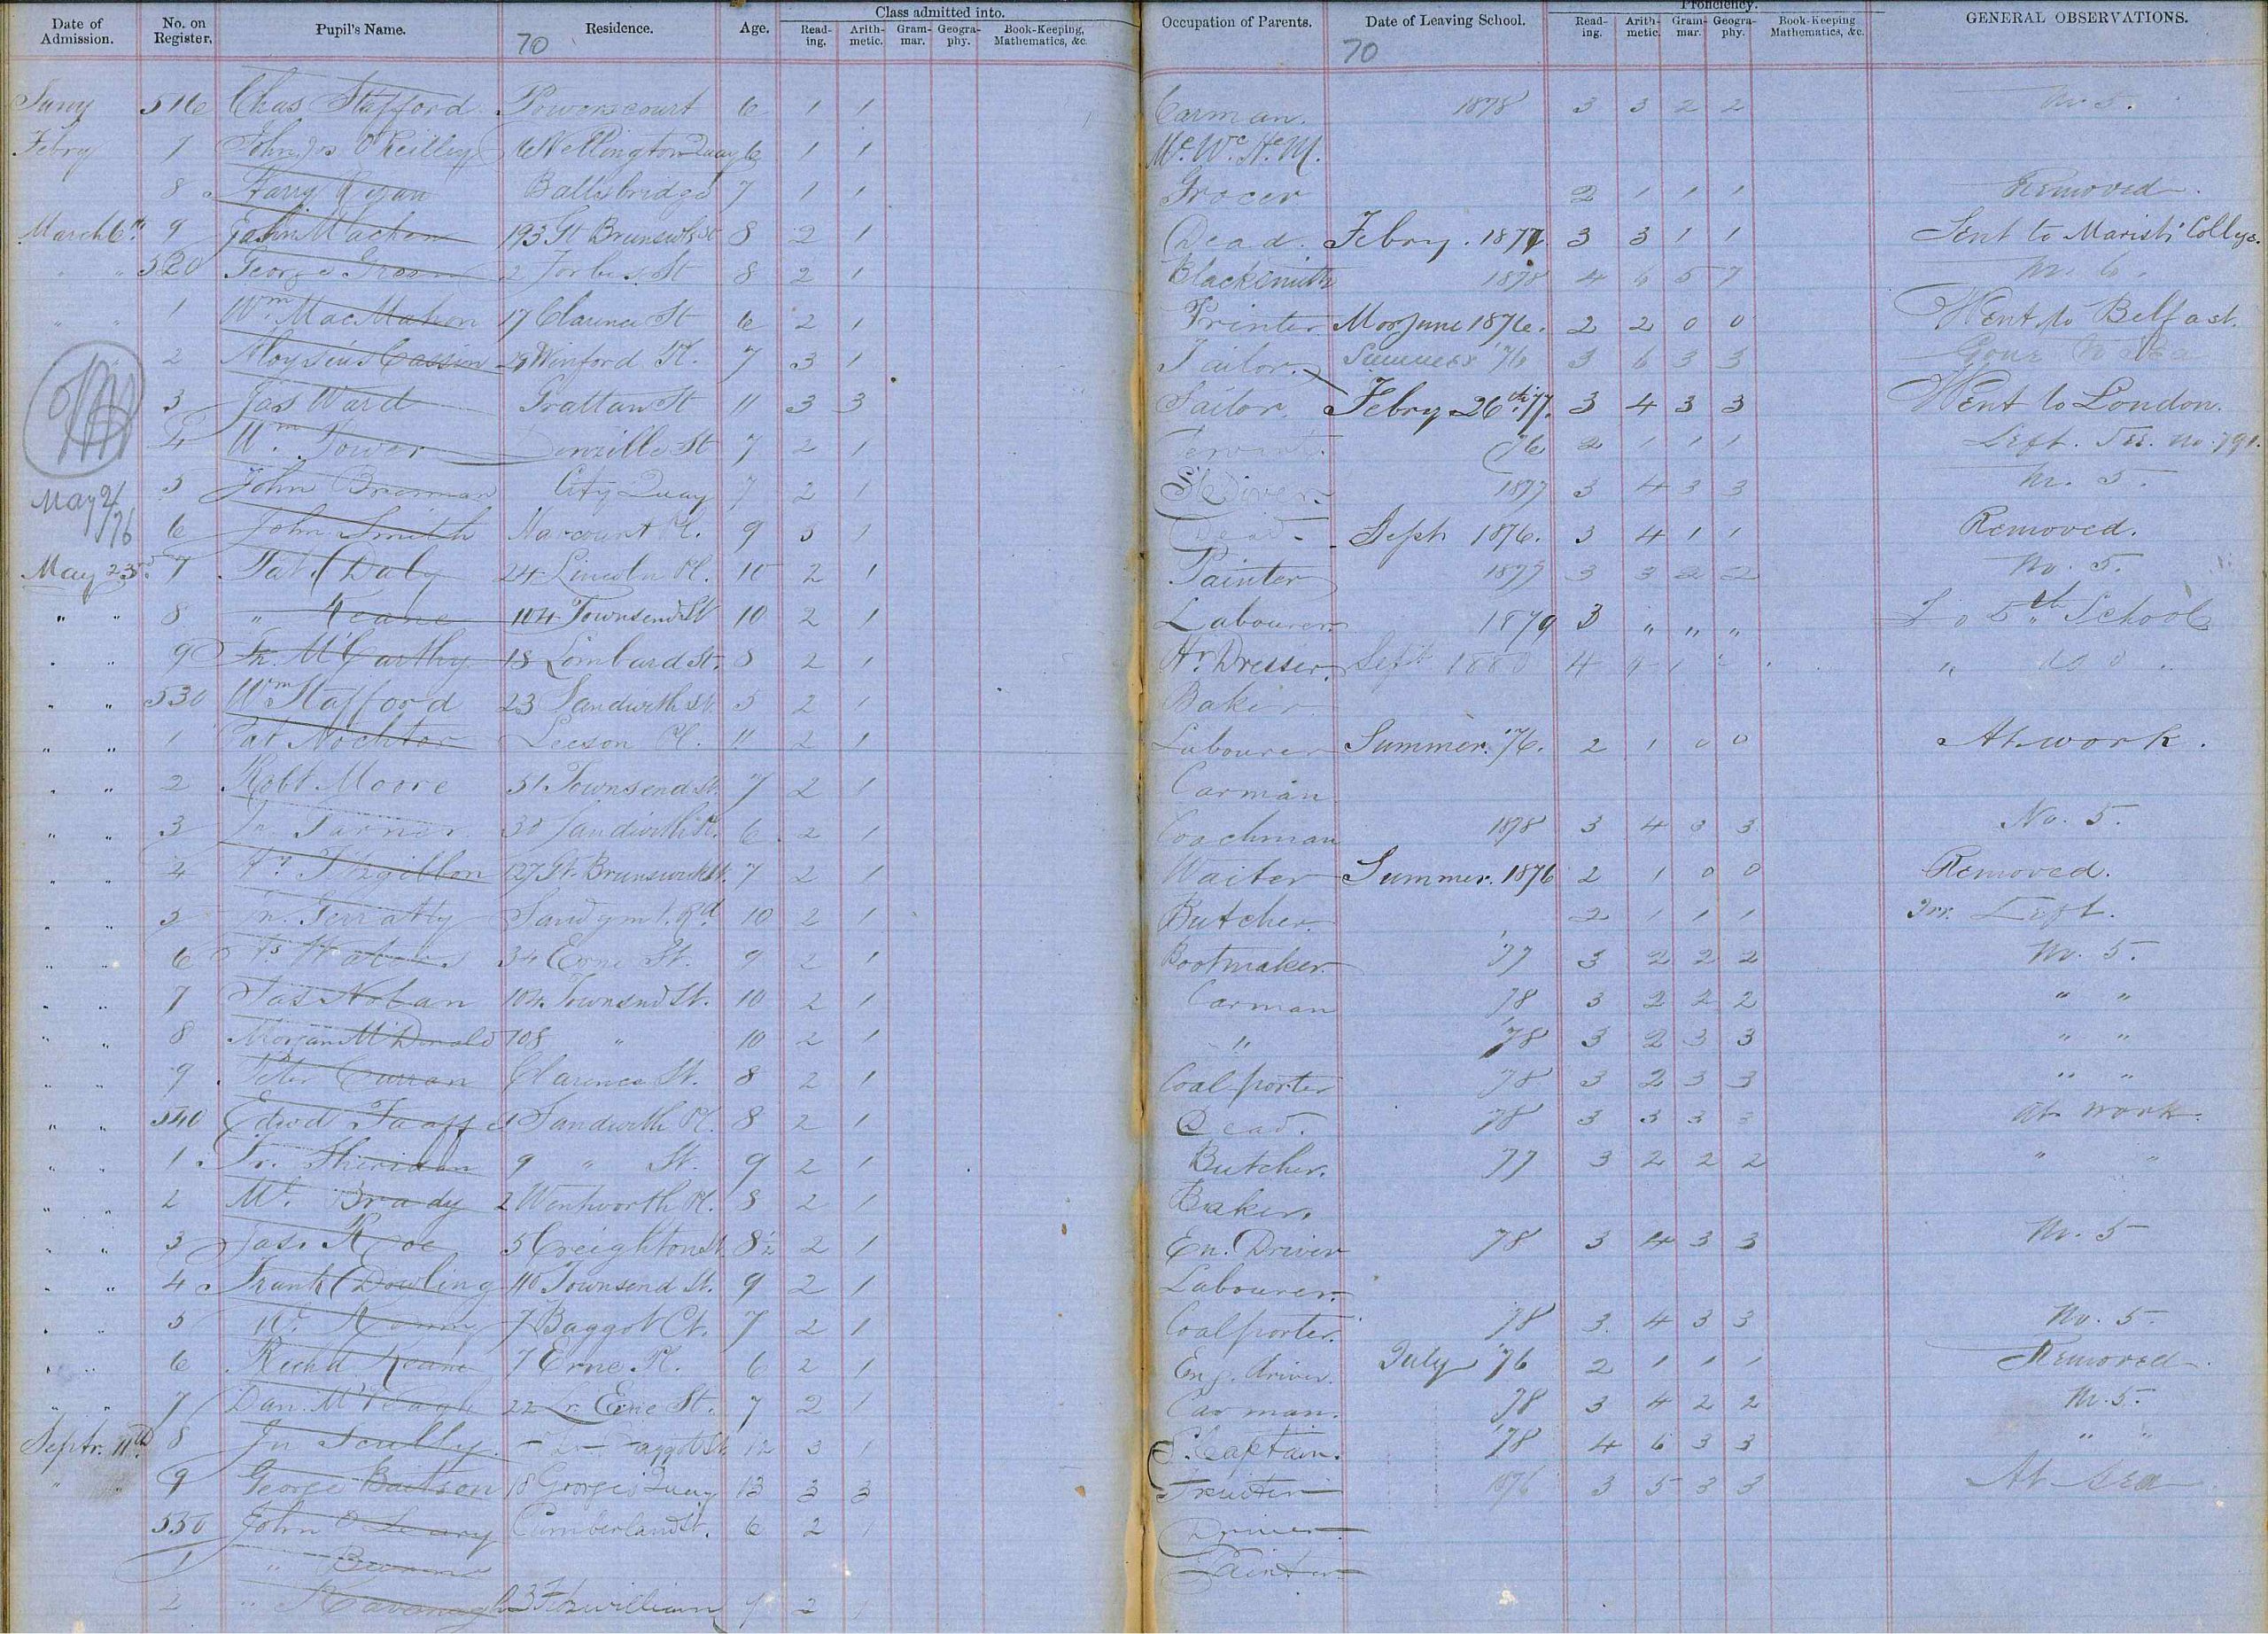 Date of Admission. No. on Register. Pupil's Name. Residence. Age. Class admitted into. Reading. Arithmetic. Grammar. Geography. Book-Keeping, Mathematics, &c. Occupation of Parents. Date of Leaving School. Proficiency. Reading. Arithmetic. Grammar. Geography. Book-Keeping Mathematics, &c. GENERAL OBSERVATIONS.
70 70
516 Chas Stafford Powerscourt 6 1 1 Carman. 1878 3 3 2 2 No. 5.
Febry 7 John Jos O'Reilly 6 Wellington Quay 6 1 1
8 Harry Ryan Ballsbridge 7 1 1 Grocer 2 1 1 1 Removed.
March 6th 9 John Machen 193 Gt Brunswk St 8 2 1 Dead. Febry. 1877 3 3 1 1 Sent to Marist College.
" " 520 George Green 2 Forbes St 8 2 1 Blacksmith 1878 4 6 5 7 No. 6.
" " 1 Wm MacMahon 17 Clarence St 6 2 1 Printer June 1876. 2 2 0 0 Went to Belfast.
2 Aloysius Cassin Winford Pl. 7 3 1 Tailor. Summer '76 3 6 3 3 Gone to Sea
3 Jas Ward Grattan St 11 3 3 Sailor. Febry 26th '77. 3 4 3 3 Went to London.
4 Wm Power Denzille St 7 2 1 Servant. '76 2 1 1 1 Left. See no. 791.
5 John Brennan City Quay 7 2 1 1877 3 4 3 3 No. 5.
May 2/76
6 John Smith Harcourt Pl. 9 3 1 Dead. Sept 1876. 3 4 1 1 Removed.
May 23rd 7 Pat. Daly 24 Lincoln Pl. 10 2 1 Painter 1877 3 3 2 2 No. 5.
" " 8 " Keane 104 Townsend St 10 2 1 Labourer. 1879 3 " " " To 5th School
" " 9 Fr. McCarthy 18 Lombard St. 8 2 1 Hr. Dresser. Sept 1880 4 " do
" " 530 Wm Stafford 23 Sandwith St. 5 2 1 Baker
" " 1 Pat Nochtor Leeson Pl. 11 2 1 Labourer Summer. '76. 2 1 0 0 At work.
" " 2 Robt Moore 51 Townsend St. 7 2 1 Carman
" " 3 Jn. 30 Sandwith St. 6 2 1 Coachman 1878 3 4 3 3 No. 5.
" " 4 Fitzgibbon 127 Gt. Brunswick St. 7 2 1 Waiter Summer. 1876 2 1 0 0 Removed.
" " 5 Jn. Gerratty Sandymt. Rd 10 2 1 Butcher. 2 1 1 1 Irr. Left.
" " 6 Waters 34 Erne St. 9 2 1 Bootmaker. '77 3 2 2 2 No. 5.
" " 7 Jas Nolan 104 Townsend St. 10 2 1 Carman '78 3 2 2 2 " "
" " 8 Morgan McDonald 108 " 10 2 1 " '78 3 2 3 3 " "
" " 9 Peter Curran Clarence St. 8 2 1 Coalporter '78 3 2 3 3 " "
" " 540 Edwd Taaffe 1 Sandwith Pl. 8 2 1 Dead. '78 3 3 3 3 At work.
" " 1 Fr. Sheridan 9 " St. 9 2 1 Butcher. 77 3 2 2 2 " "
" " 2 Ml. Brady 2 Wentworth Pl. 8 2 1 Baker.
" " 3 Jas. Roe 5 Creighton St. 8½ 2 1 En. Driver '78 3 4 3 3 No. 5
" " 4 Frank Dowling 110 Townsend St. 9 2 1 Labourer.
" " 5 7 Baggot Ct. 7 2 1 Coalporter. '78 3 4 3 3 No. 5.
" " 6 Richd Keane 7 Erne Pl. 6 2 1 Eng. driver. July '76 2 1 1 1 Removed.
" " 7 Dan. 22 Lr. Erne St. 7 2 1 Carman. '78 3 4 2 2 No. 5.
Septr. 11th 8 Jn Scully Baggot St. 12 3 1 S. Captain. '78 4 6 3 3 " "
" " 9 George Batson 18 George's Quay 13 3 3 1876 3 5 3 3 At Sea
550 John O'Leary Cumberland St. 6 2 1 Driver
1 " Painter
2 " Kavanagh 3 Fitzwilliam 7 2 1